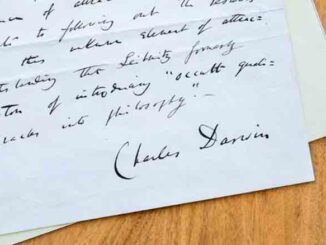 of
to following out the results
this unknown element of attrac=
tstanding that Leibnitz formerly
ton of introducing "occult quali=
racles into philosophy".—
Charles Darwin